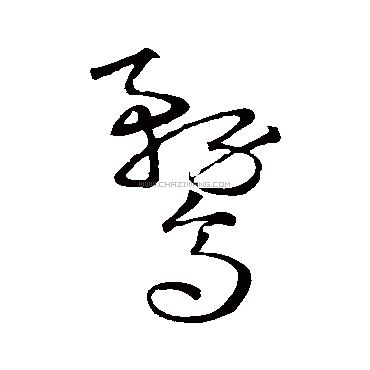 鶩
WWW.CHAZIWANG.COM